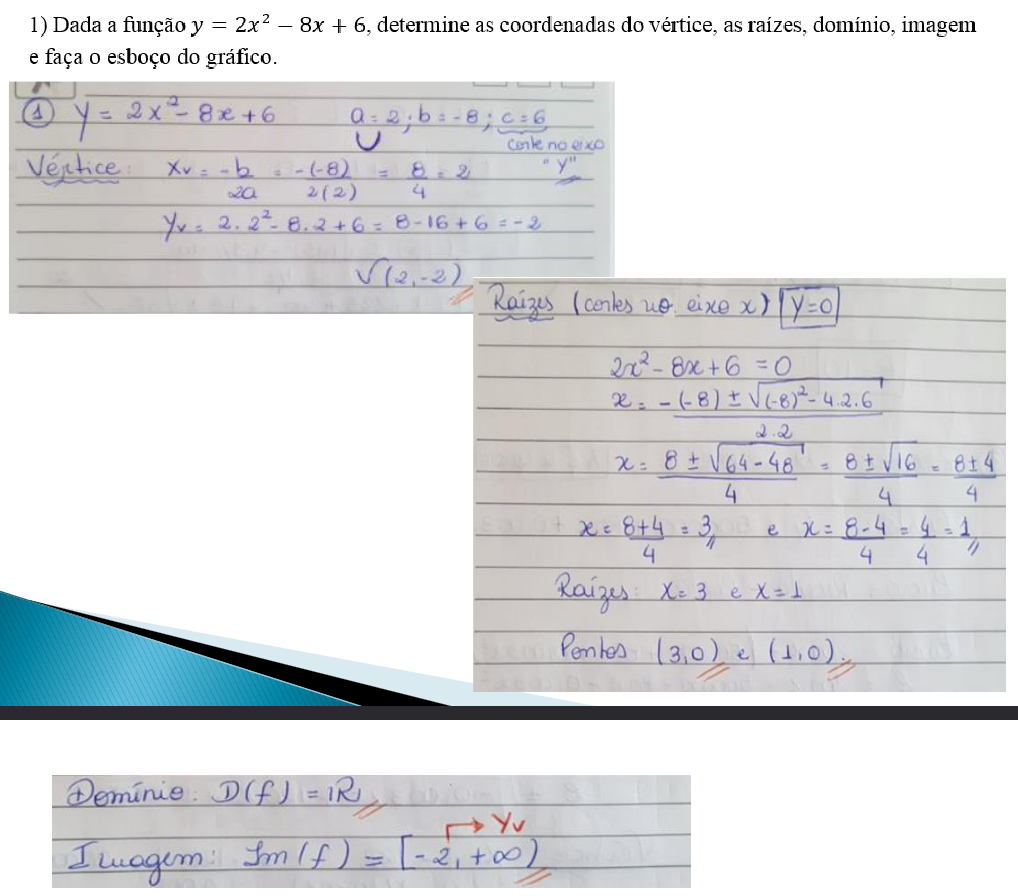 1) Dada a função y = 2x² − 8x + 6, determine as coordenadas do vértice, as raízes, domínio, imagem
e faça o esboço do gráfico.
① y = 2x² - 8x + 6 a = 2 ; b = -8 ; c = 6
corte no eixo
"y"
Vértice: Xv = -b/2a = -(-8)/2(2) = 8/4 = 2
Yv = 2. 2² - 8. 2 + 6 = 8 - 16 + 6 = -2
V(2,-2)
Raízes (cortes no. eixo x) y=0
2x² - 8x + 6 = 0
x = -(-8) ± √(-8)² - 4.2.6 / 2.2
x = 8 ± √64 - 48 / 4 = 8 ± √16 / 4 = 8 ± 4 / 4
x = 8+4 / 4 = 3 e x = 8-4 / 4 = 4/4 = 1
Raízes: x = 3 e x = 1
Pontos (3,0) e (1,0).
Domínio: D(f) = IR
→ Yv
Imagem: Im(f) = [-2, +∞)